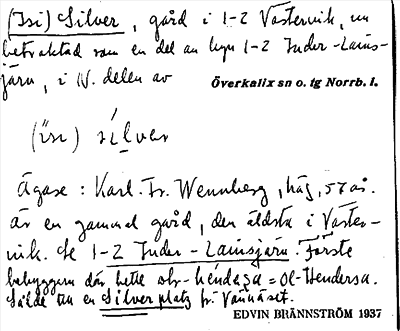 (Isi) Silver, gård i 1-2 Västervik, nu
betraktad som en del av byn 1-2 Inder-Lains-
järn, i N. delen av
Överkalix sn o. tg Norrb. l.
(isi) silver
Ägare: Karl. Fr. Wennberg, häg, 57 år.
Är en gammal gård, den äldsta i Väster-
vik. Se 1-2 Inder-Lainsjärn. Förste
bebyggaren där hette ol-hendasa = Ol-Hendersa.
en Silverplatz fr. Vännäset.
EDVIN BRÄNNSTRÖM 1937